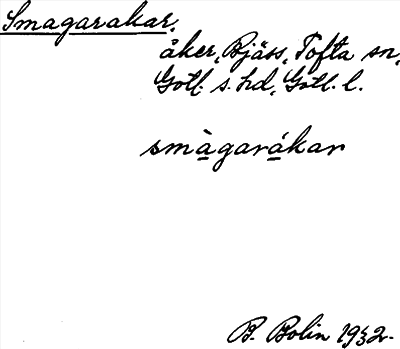 Smagarakar,
åker, Bjäss, Tofta sn,
Gotl. s. hd, Gotl. l.
smàgarákar
B. Bolin 1932.